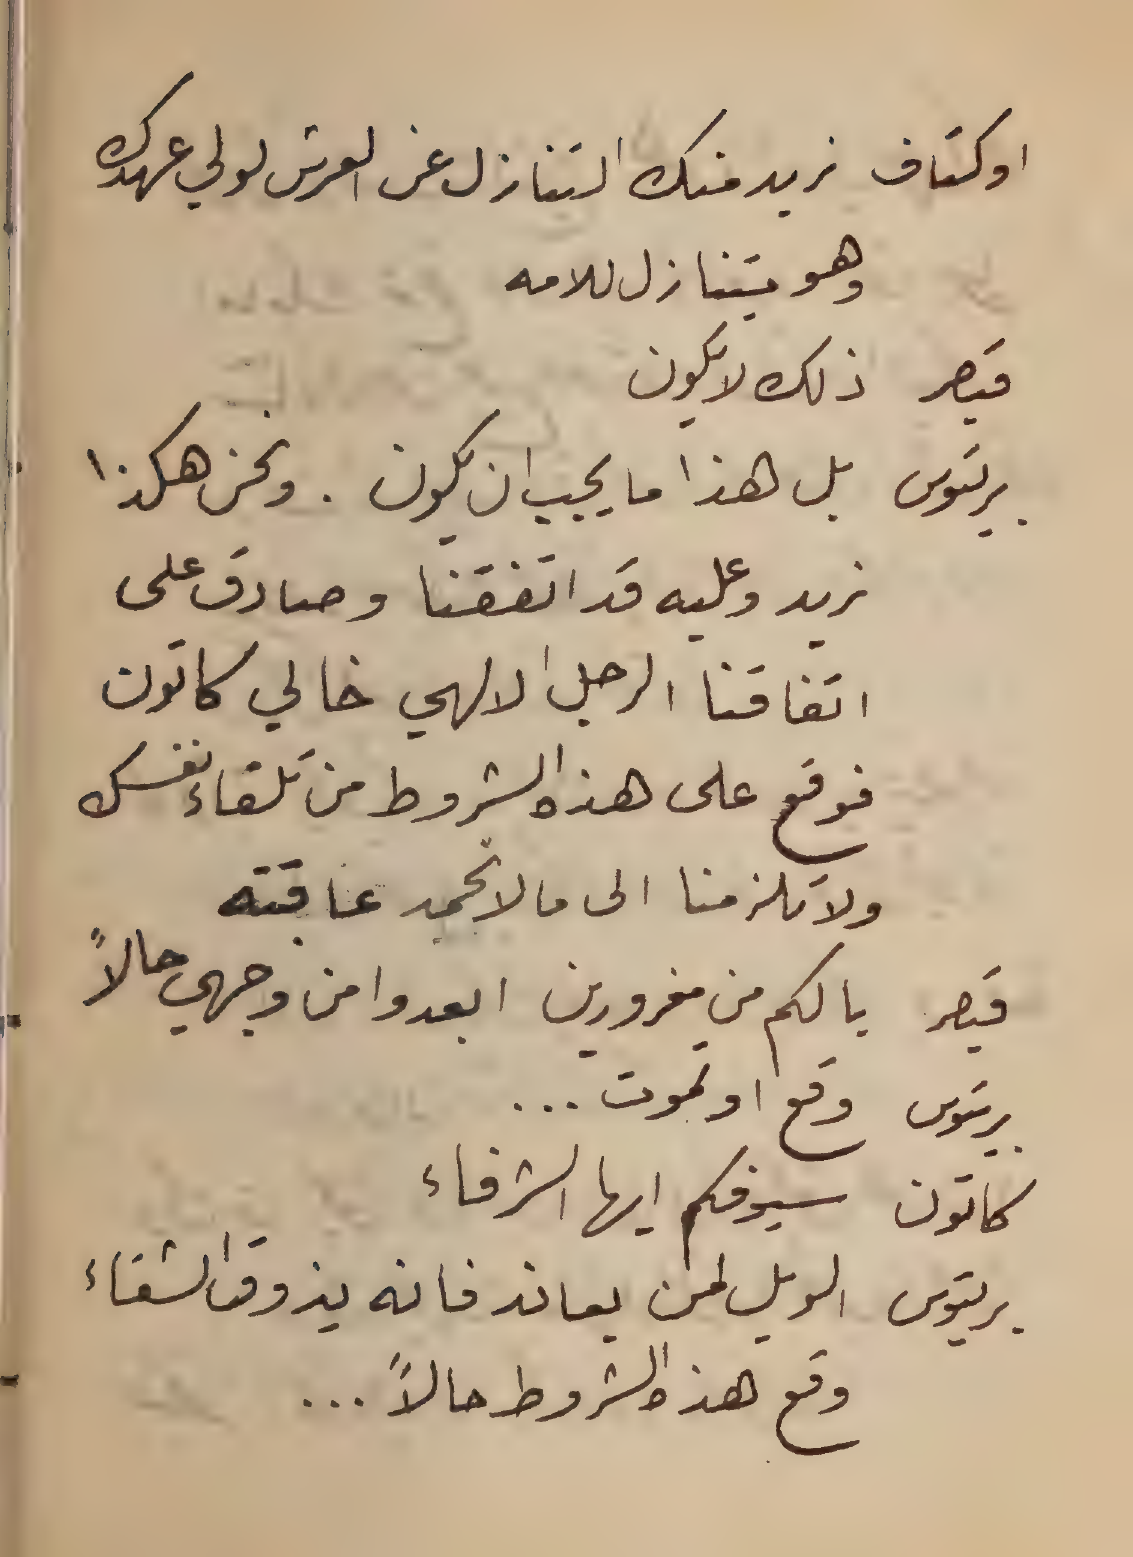 اوكتاف نريد منك التنازل عن العرش لولي عهدك
وهو يتنازل للامه
قيصر ذلك لا يكون
بريتوس بل هذا ما يجب ان يكون . ونحن هكذا
نريد وعليه قد اتفقنا وصادق على
اتفاقنا الرجل الالهي خالي كاتون
فوقع على هذه الشروط من تلقاء نفسك
ولا تلزمنا الى ما لا تحمد عاقبته
قيصر يالكم من مغرورين ابعدوا من وجهي حالاً
بريتوس وقع او تموت ...
كاتون سيوفكم ايها الشرفاء
بريتوس الويل لمن يعاند فانه يذوق الشقاء
وقع هذه الشروط حالاً ...